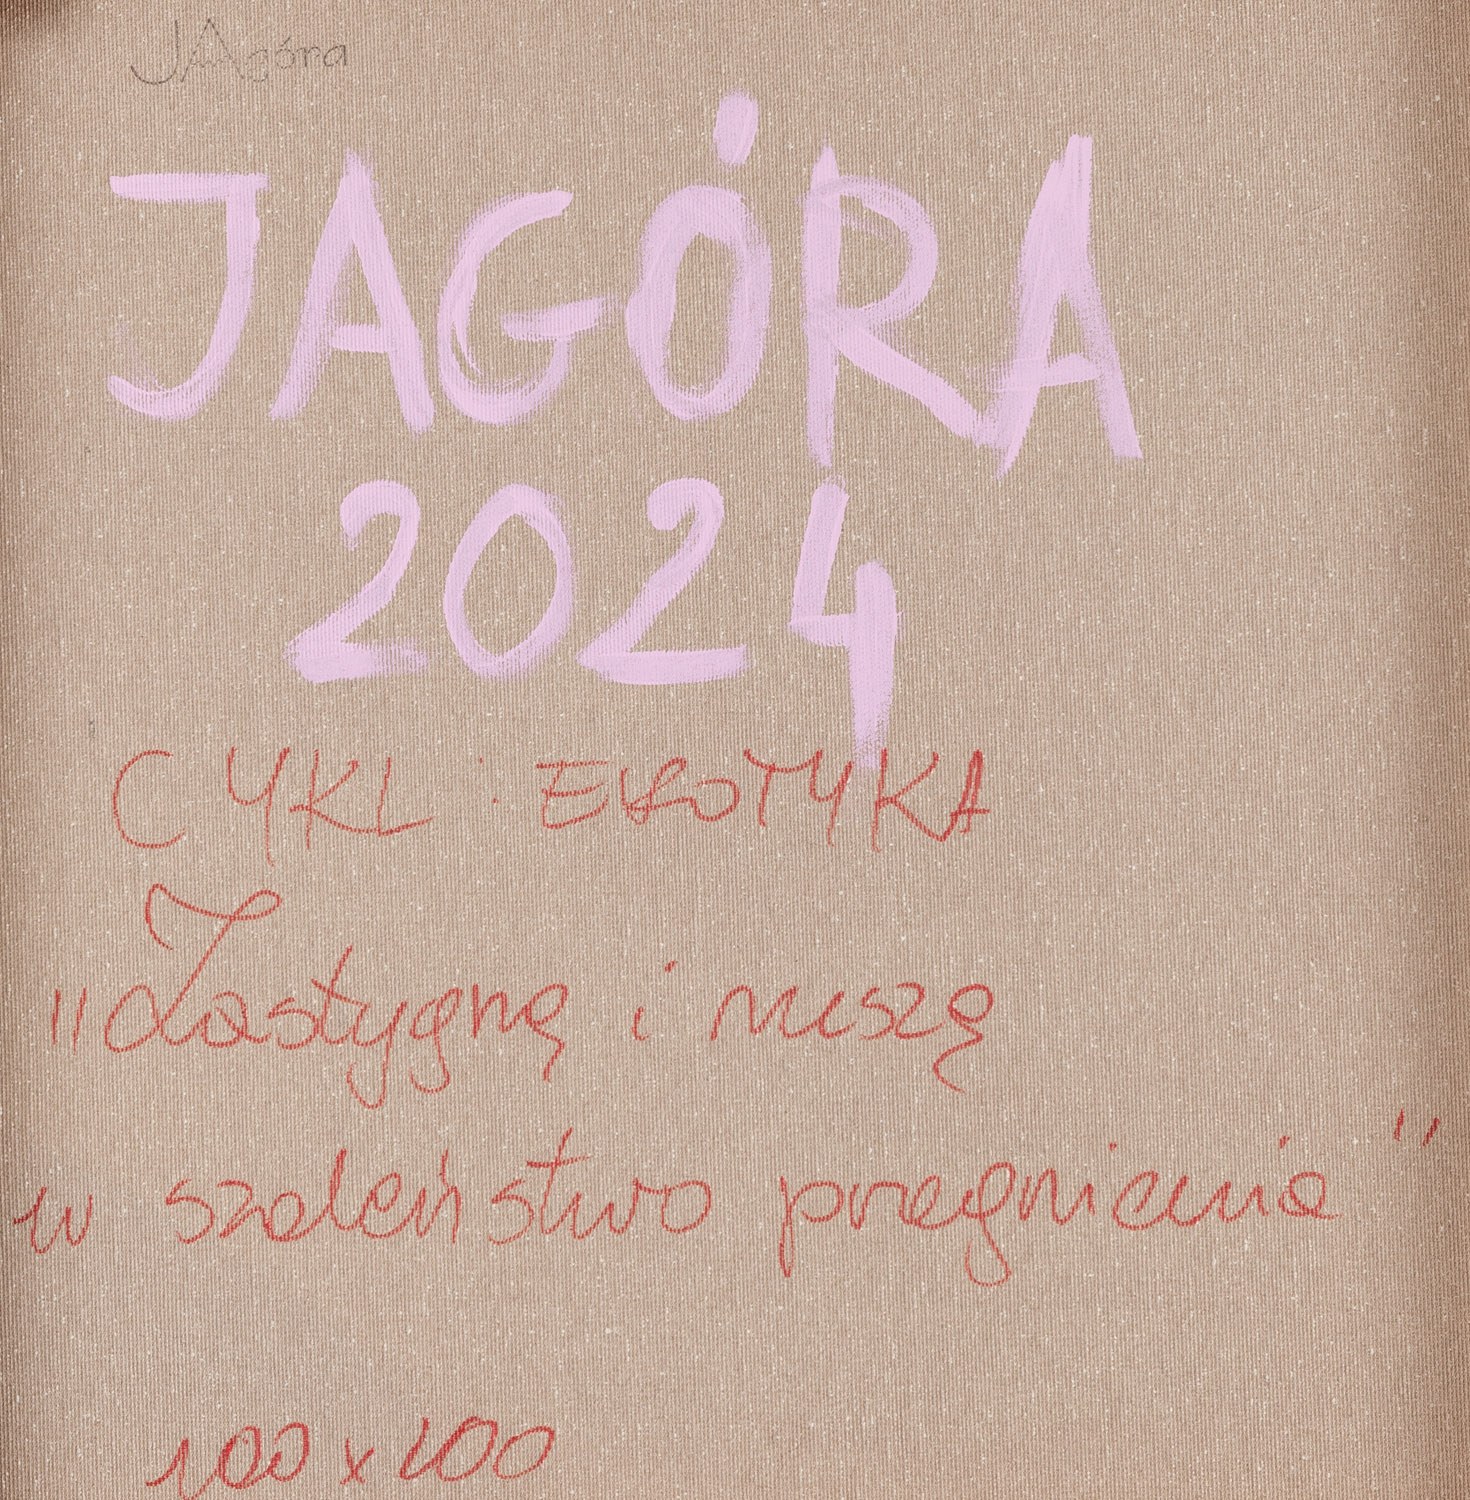 JAgóra
JAGÓRA
2024
CYKL : EROTYKA
"Zastygnę i ruszę
w szaleństwo pragnienia"
100 x 100